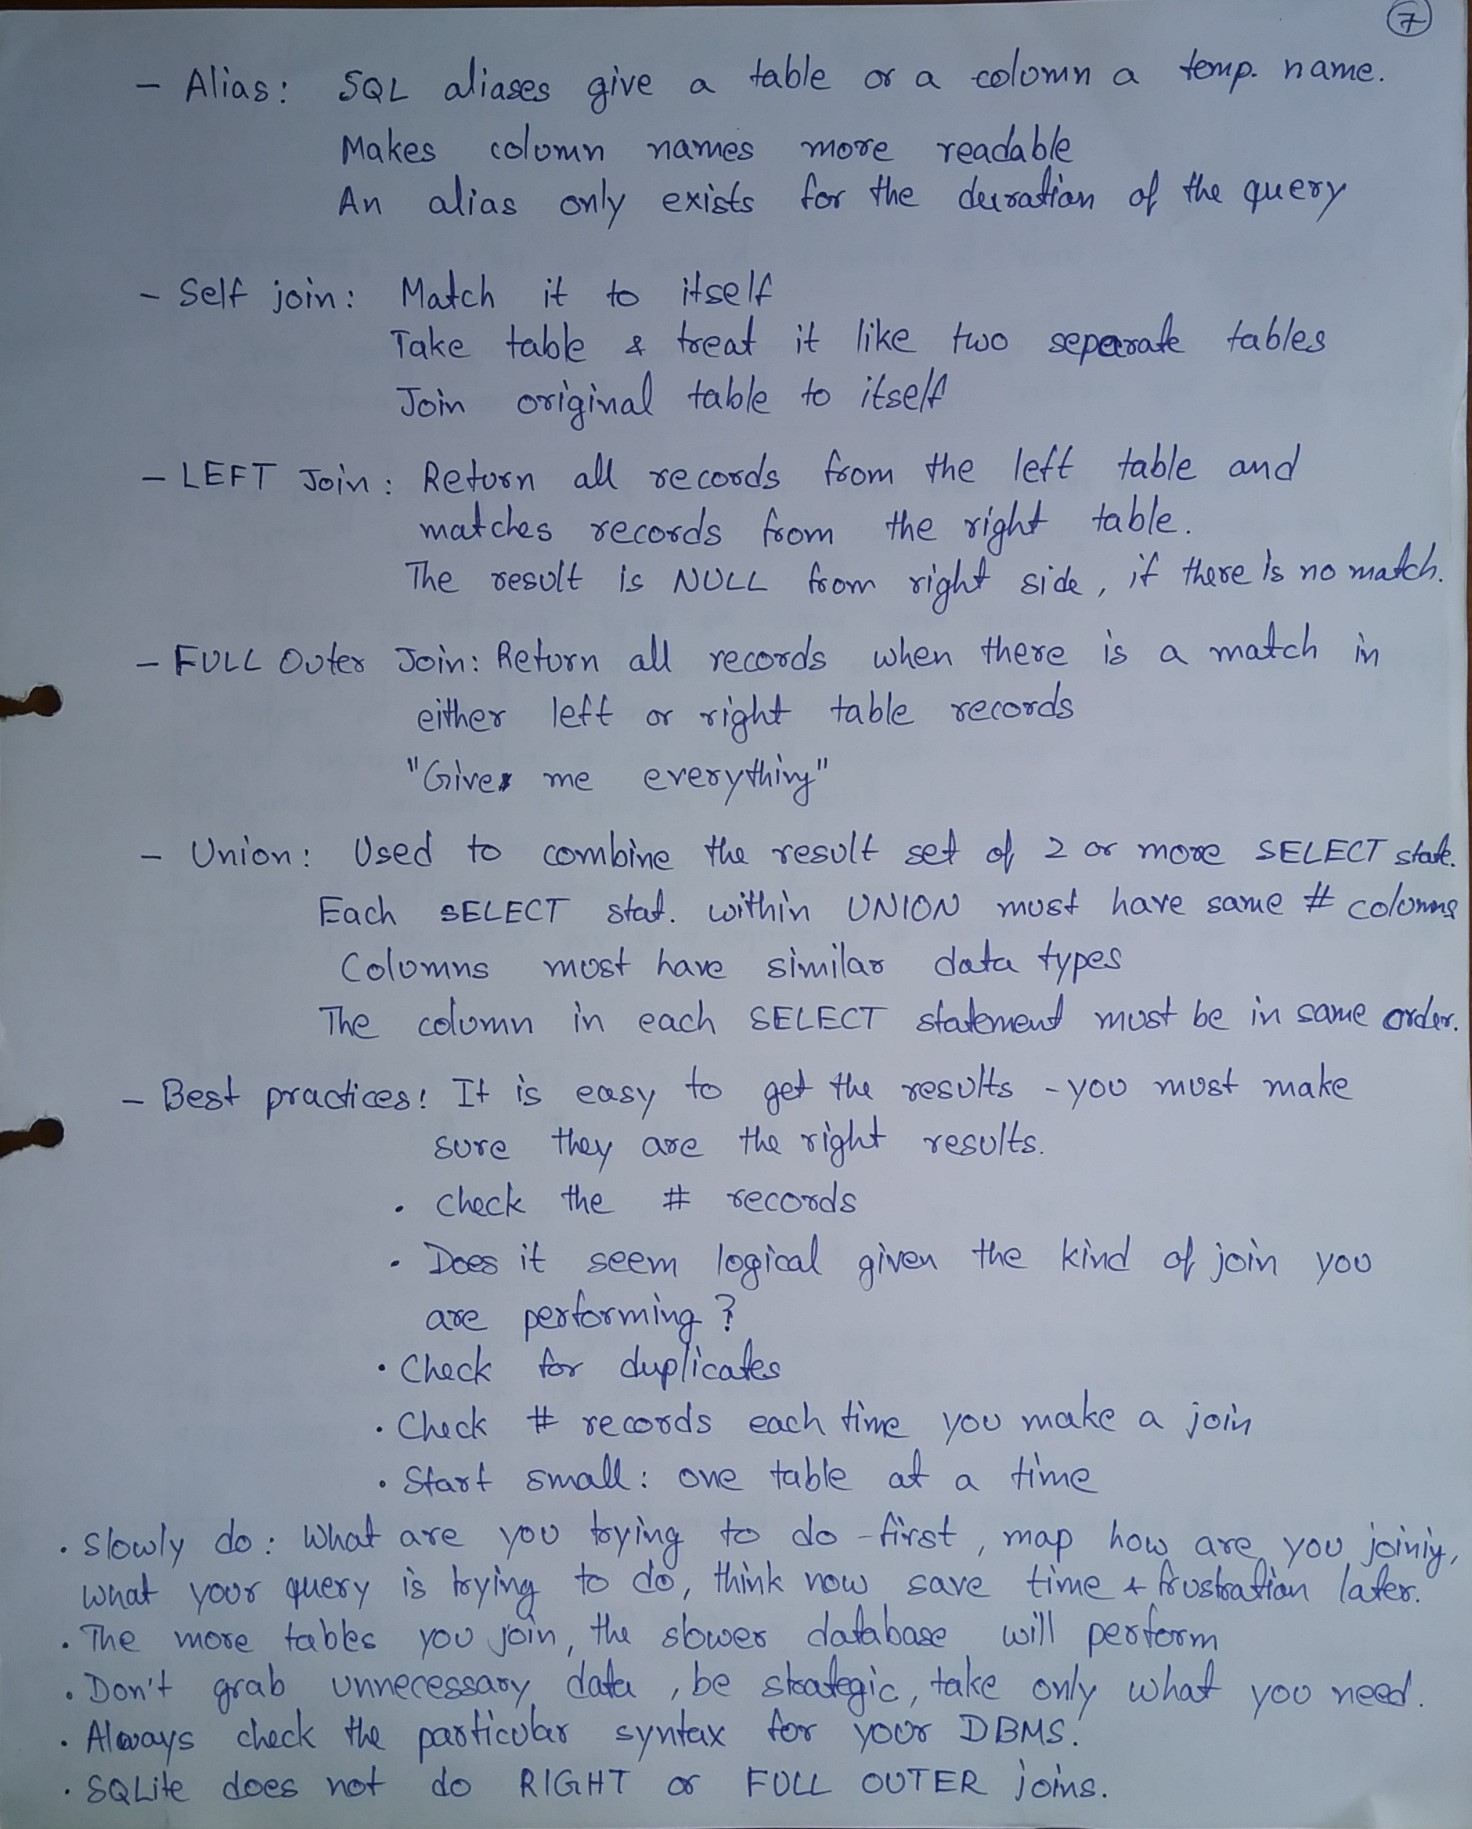 7
- Alias: SQL aliases give a table or a column a temp. name.
Makes column names more readable
An alias only exists for the duration of the query
- Self join: Match it to itself
Take table & treat it like two seperate tables
Join original table to itself
- LEFT Join: Return all records from the left table and
matches records from the right table.
The result is NULL from right side, if there is no match.
- FULL Outer Join: Return all records when there is a match in
either left or right table records
"Give me everything"
- Union: Used to combine the result set of 2 or more SELECT state.
Each SELECT stat. within UNION must have same # columns
Columns must have similar data types
The column in each SELECT statement must be in same order.
- Best practices: It is easy to get the results - you must make
sure they are the right results.
• check the # records
• Does it seem logical given the kind of join you
are performing?
• Check for duplicates
• Check # records each time you make a join
• Start small: one table at a time
• Slowly do: What are you trying to do - first, map how are you joining,
what your query is trying to do, think now save time + frustration later.
• The more tables you join, the slower database will perform
• Don't grab unnecessary data, be strategic, take only what you need.
• Always check the particular syntax for your DBMS.
• SQLite does not do RIGHT or FULL OUTER joins.